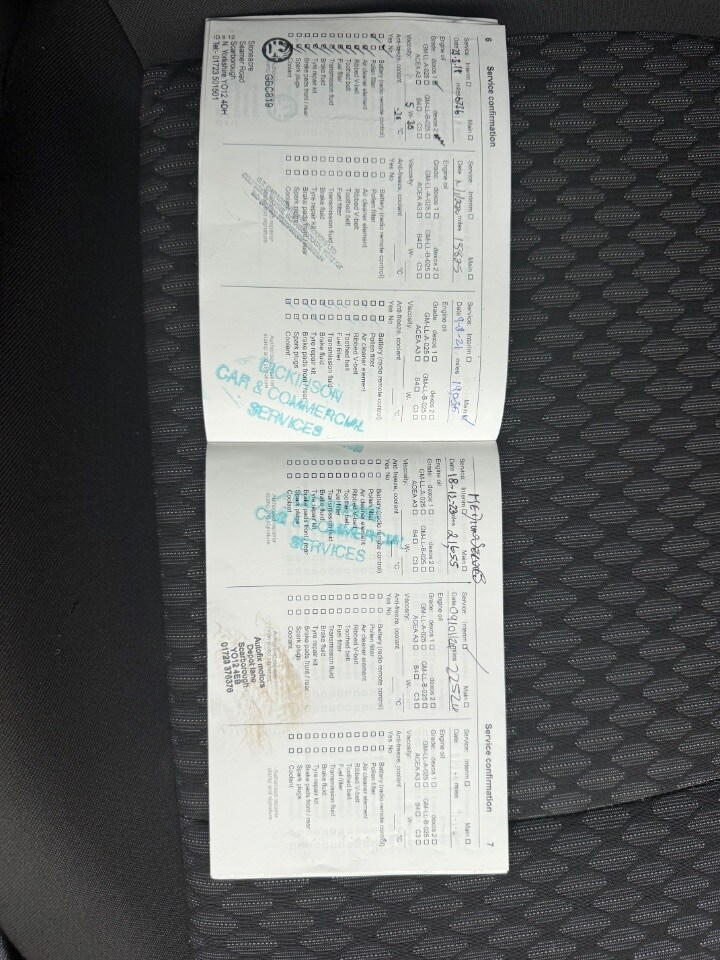 6 Service confirmation
Service: Interim Main
miles
Engine oil
Grade: dexos 1 dexos 2
GM-LL-A-025 GM-LL-B-025
ACEA A3 B4 C3
Viscosity: 5 W- 30
Anti-freeze, coolant °C
Yes No
Battery (radio remote control)
Pollen filter
Air cleaner element
Ribbed V-belt
Toothed belt
Fuel filter
Transmission fluid
Brake fluid
Tyre repair kit
Brake pads front / rear
Spark plugs
Coolant
GBC819
Stoneacre
Seamer Road
Scarborough
N. Yorkshire YO12 4DH
Tel: 01723 501501
Service: Interim Main
Date miles
Engine oil
Grade: dexos 1 dexos 2
GM-LL-A-025 GM-LL-B-025
ACEA A3 B4 C3
Viscosity: W-
Anti-freeze, coolant °C
Yes No
Battery (radio remote control)
Pollen filter
Air cleaner element
Ribbed V-belt
Toothed belt
Fuel filter
Transmission fluid
Brake fluid
Tyre repair kit
Brake pads front / rear
Spark plugs
Coolant
Service: Interim Main
Date miles 19,035
Engine oil
Grade: dexos 1 dexos 2
GM-LL-A-025 GM-LL-B-025
ACEA A3 B4 C3
Viscosity: W-
Anti-freeze, coolant °C
Yes No
Battery (radio remote control)
Pollen filter
Air cleaner element
Ribbed V-belt
Toothed belt
Fuel filter
Transmission fluid
Brake fluid
Tyre repair kit
Brake pads front / rear
Spark plugs
Coolant
CAR & COMMERCIAL
SERVICES
Service confirmation 7
Service: Interim Main
Date 18-12-23 miles 21,655
Engine oil
Grade: dexos 1 dexos 2
GM-LL-A-025 GM-LL-B-025
ACEA A3 B4 C3
Viscosity: W-
Anti-freeze, coolant °C
Yes No
Battery (radio remote control)
Pollen filter
Air cleaner element
Ribbed V-belt
Toothed belt
Fuel filter
Transmission fluid
Brake fluid
Tyre repair kit
Brake pads front / rear
Spark plugs
Coolant
SERVICES
Service: Interim Main
Date miles
Engine oil
Grade: dexos 1 dexos 2
GM-LL-A-025 GM-LL-B-025
ACEA A3 B4 C3
Viscosity: W-
Anti-freeze, coolant °C
Yes No
Battery (radio remote control)
Pollen filter
Air cleaner element
Ribbed V-belt
Toothed belt
Fuel filter
Transmission fluid
Brake fluid
Tyre repair kit
Brake pads front / rear
Spark plugs
Coolant
Autofix motors
Depot lane
Scarborough
YO12 4EB
01723 376376
Service: Interim Main
Date miles
Engine oil
Grade: dexos 1 dexos 2
GM-LL-A-025 GM-LL-B-025
ACEA A3 B4 C3
Viscosity: W-
Anti-freeze, coolant °C
Yes No
Battery (radio remote control)
Pollen filter
Air cleaner element
Ribbed V-belt
Toothed belt
Fuel filter
Transmission fluid
Brake fluid
Tyre repair kit
Brake pads front / rear
Spark plugs
Coolant